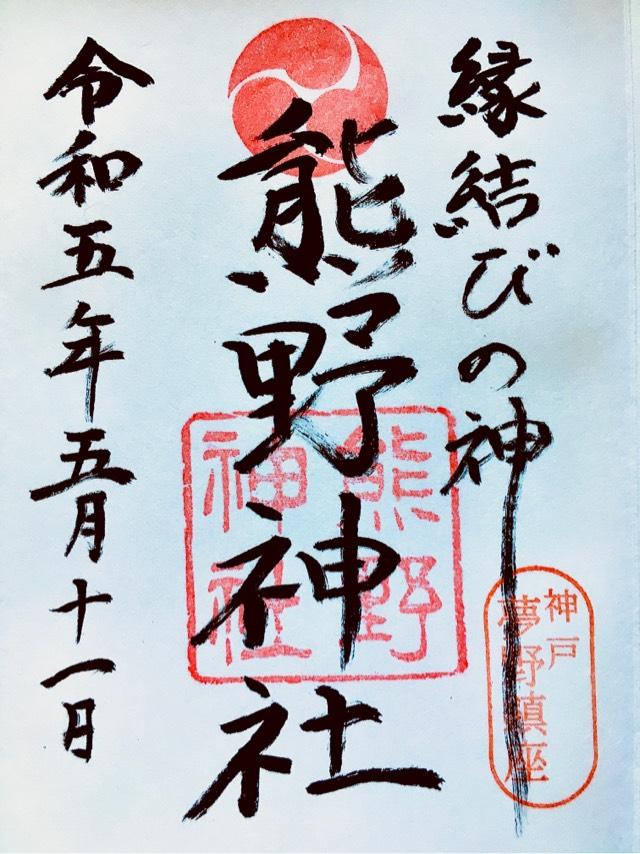 縁結びの神
神戸
夢野鎮座
熊野神社
熊野
神社
令和五年五月十一日